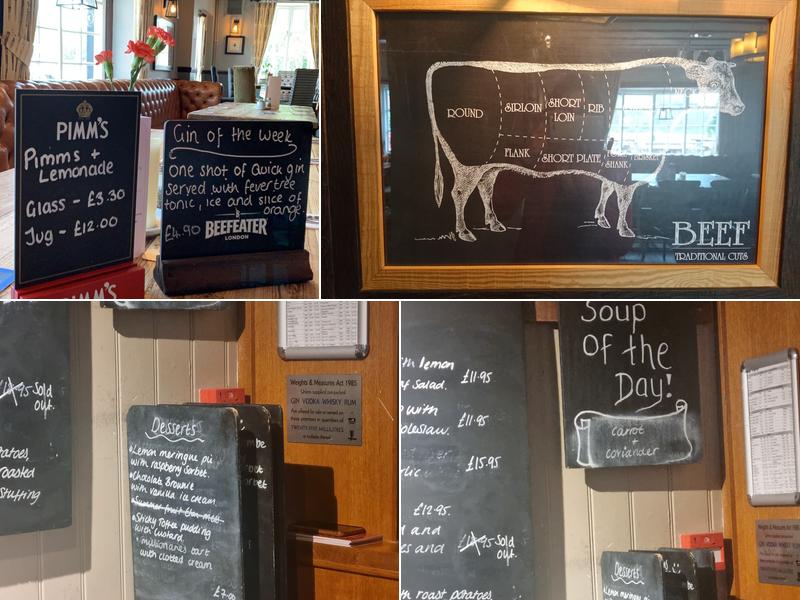 PIMM'S
Pimms +
Lemonade
Glass - £3.30
Jug - £12.00
PIMM'S
Gin of the week
One shot of Quick gin
served with fever tree
tonic, ice and slice of
orange.
£4.90
BEEFEATER
LONDON
ROUND
SIRLOIN
SHORT
LOIN
RIB
FLANK
SHORT PLATE
SHANK
BRISKET
BEEF
TRADITIONAL CUTS
Sold
out.
roasted
stuffing
Desserts
Lemon meringue pie
with raspberry sorbet.
Chocolate Brownie
with vanilla ice cream
Sticky Toffee pudding
with custard.
millionaires tart
with clotted cream
£7.00
Weights & Measures Act 1985
GIN VODKA WHISKY RUM
TWENTY FIVE MILLILITRES
lemon
salad. £11.95
with
£11.95
£15.95
£12.95
and
and
Sold
out.
roast potatoes
Soup
of the
Day!
carrot
+
coriander
Desserts
Lemon meringue pie
GIN VODKA WHISKY RUM